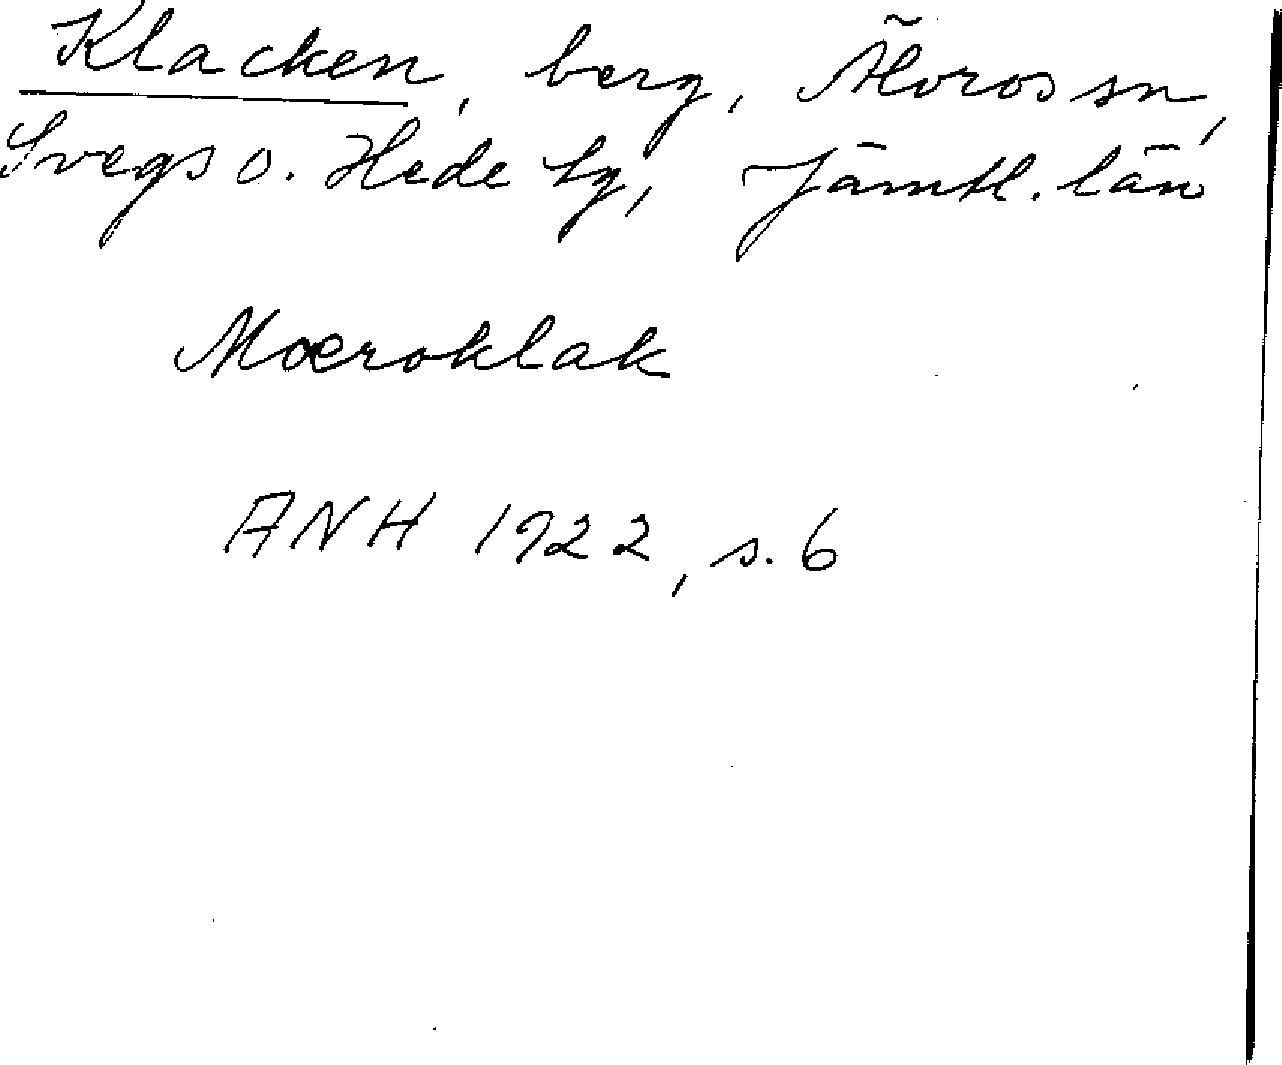 Klacken, berg, Älvros sn,
Svegs o. Hede tg, Jämtl. län
Moeroklak
ANH 1922, s. 6